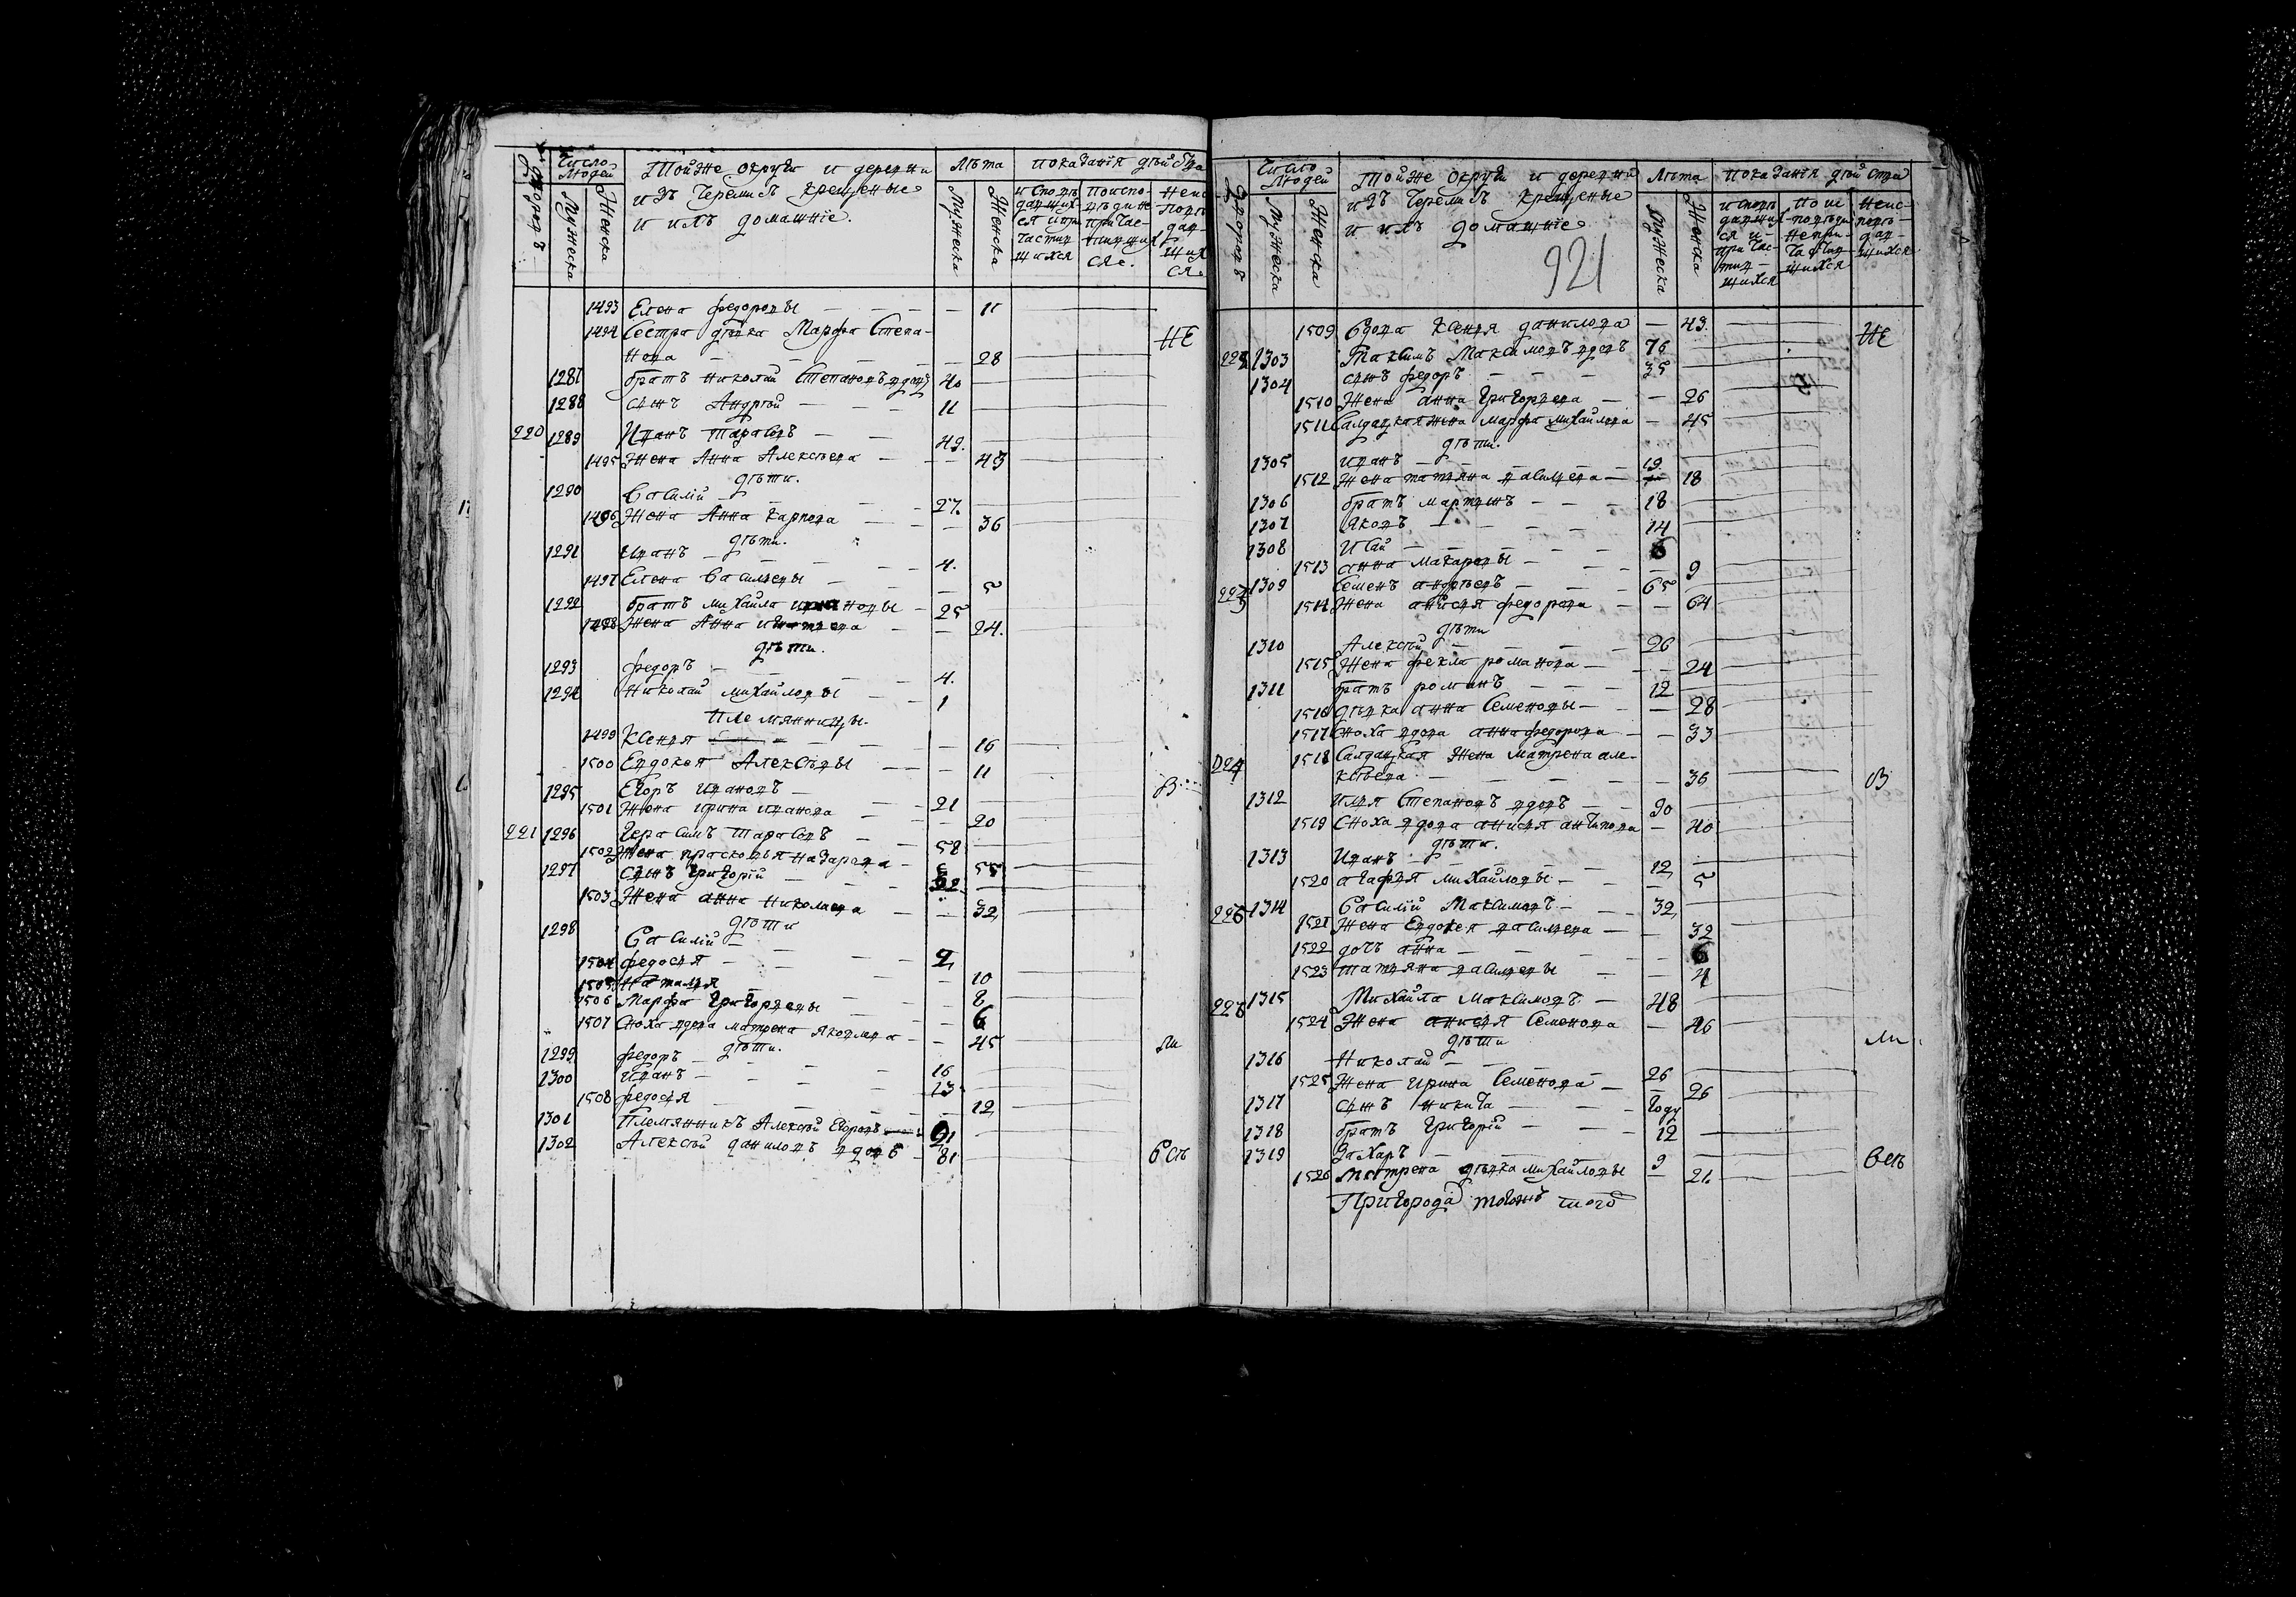 Число Людей
Тойже округи и деревни
изъ Черемисъ крещеные
и ихъ домашніе.
Лѣта
показанія дѣйства
дворовъ
Мужеска
Женска
Мужеска
Женска
исповѣдавших ся и при частив шихся
поиспо- вѣди не причас- тившихся.
Неис повѣ дав- ших ся.
1493 Елена федоровы — 11
1494 Сестра дѣвка Марфа Степа-
нова — 28 НЕ
1287 братъ николай Степановъ вдовъ 40
1288 сынъ Андрѣй — 11
220 1289 Иванъ тарасовъ — 49.
1495 Жена Анна Алексѣева — 49
дѣти.
1290 Василій — 27.
1496 Жена Анна карпова — 36
дѣти.
1291 Иванъ — 4.
1497 Елена Васильевы — 5
1292 братъ михайла ивановы — 25
1498 Жена Анна игнатьева — 24.
дѣти.
1293 федоръ — 4.
1294 Николай михайловы — 1
племянницы.
1499 Ксенья — 16
1500 Евдокея Алексѣевы — 11
1295 Егоръ ивановъ — 21 В
1501 Жена ирина иванова — 20
221 1296 Герасимъ тарасовъ — 58
1502 Жена прасковья назарова — 55
1297 сынъ григорій — 32
1503 Жена анна николаева — 32
дѣти
1298 Василій — 2
1504 федосья — 10
1505 Наталья — 8
1506 Марфа григорьевы — 6
1507 Сноха вдова матрена яковлева — 45
дѣти. ли
1299 федоръ — 16
1300 Иванъ — 13
1508 федосья — 12
1301 Племянникъ Алексѣй Егоровъ — 21
1302 Алексѣй даниловъ вдовъ — 81 Весь
Число Людей
Тойже округи и деревни
изъ Черемисъ крещеные
и ихъ домашніе
921
Лѣта
показанія дѣйства
Дворовъ
Мужеска
Женска
Мужеска
Женска
исповѣ давших ся и причас- тив- шихся
по ис повѣди непри- частив шихся
Неис- повѣ- дав- шихся
1509 Вдова Ксенья данилова — 43. НЕ
1303 Максимъ Максимовъ вдовъ 76
1304 сынъ федоръ — 35
1510 Жена анна григорьева — 26
1511 Салдацкая жена марфа михайлова — 45
дѣти.
1305 иванъ — 19
1512 Жена татьяна васильева — 18
1306 братъ мартынъ — 18
1307 Яковъ — 14
1308 Исай — 6
1513 анна макаровы — 9
1309 Семенъ андрѣевъ — 65
1514 Жена анисья федорова — 64
дѣти
1310 Алексѣй — 26
1515 Жена фекла романова — 24
1311 братъ романъ — 12
1516 дѣвка анна Семеновы — 28
1517 Сноха вдова анна федорова — 33
1518 Салдацкая Жена Матрена але-
ксѣева — 36 В
1312 илья Степановъ вдовъ — 90
1519 Сноха вдова анисья антипова — 40
дѣти.
1313 Иванъ — 12
1520 агафья михайловы — 5
226 1314 Василій Максимовъ — 32
1521 Жена Евдокея васильева — 32
1522 дочь анна — 6
1523 татьяна васильевы — 4
1315 Михайла Максимовъ — 48
1524 Жена анисья Семенова — 46
дѣти ли
1316 Николай — 26
1525 Жена ирина Семенова — 26
1317 сынъ никита — году
1318 братъ григорій — 12
1319 Захаръ — 9 Весь
1526 матрена дѣвка михайловы — 21
Пригорода тогожъ